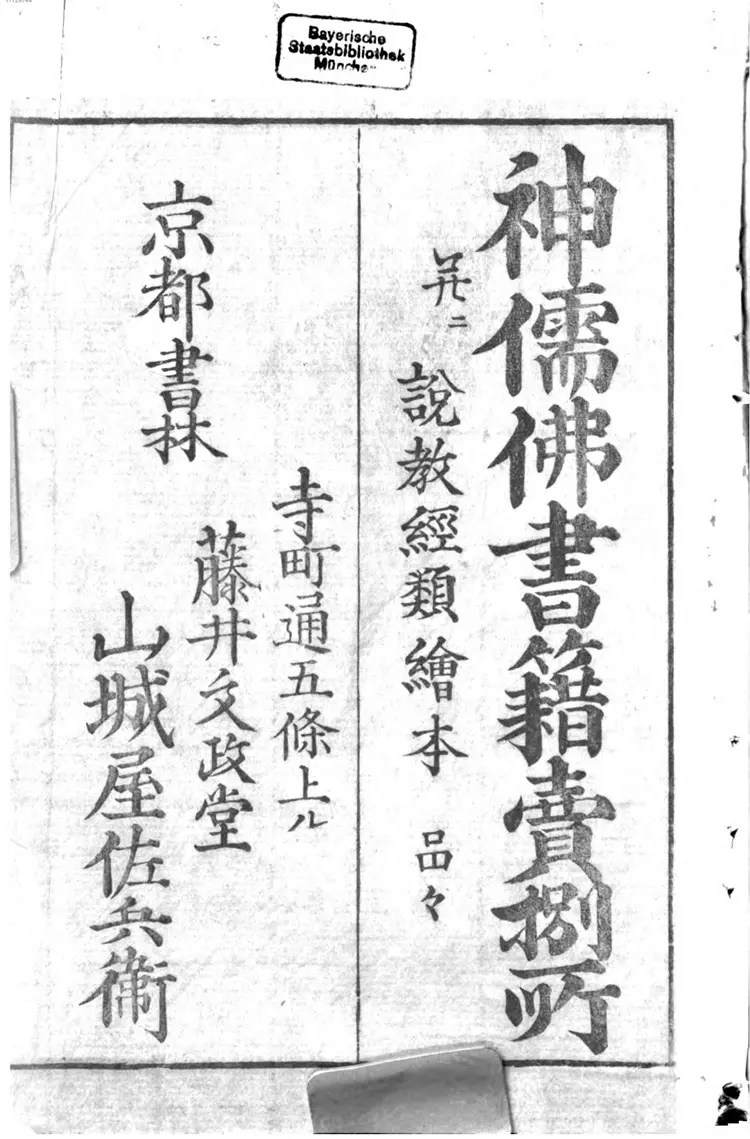 Bayerische
Staatsbibliothek
München
神儒佛書籍賣捌所
并ニ 說教經類繪本 品々
寺町通五條上ル
藤井文政堂
京都書林
山城屋佐兵衞